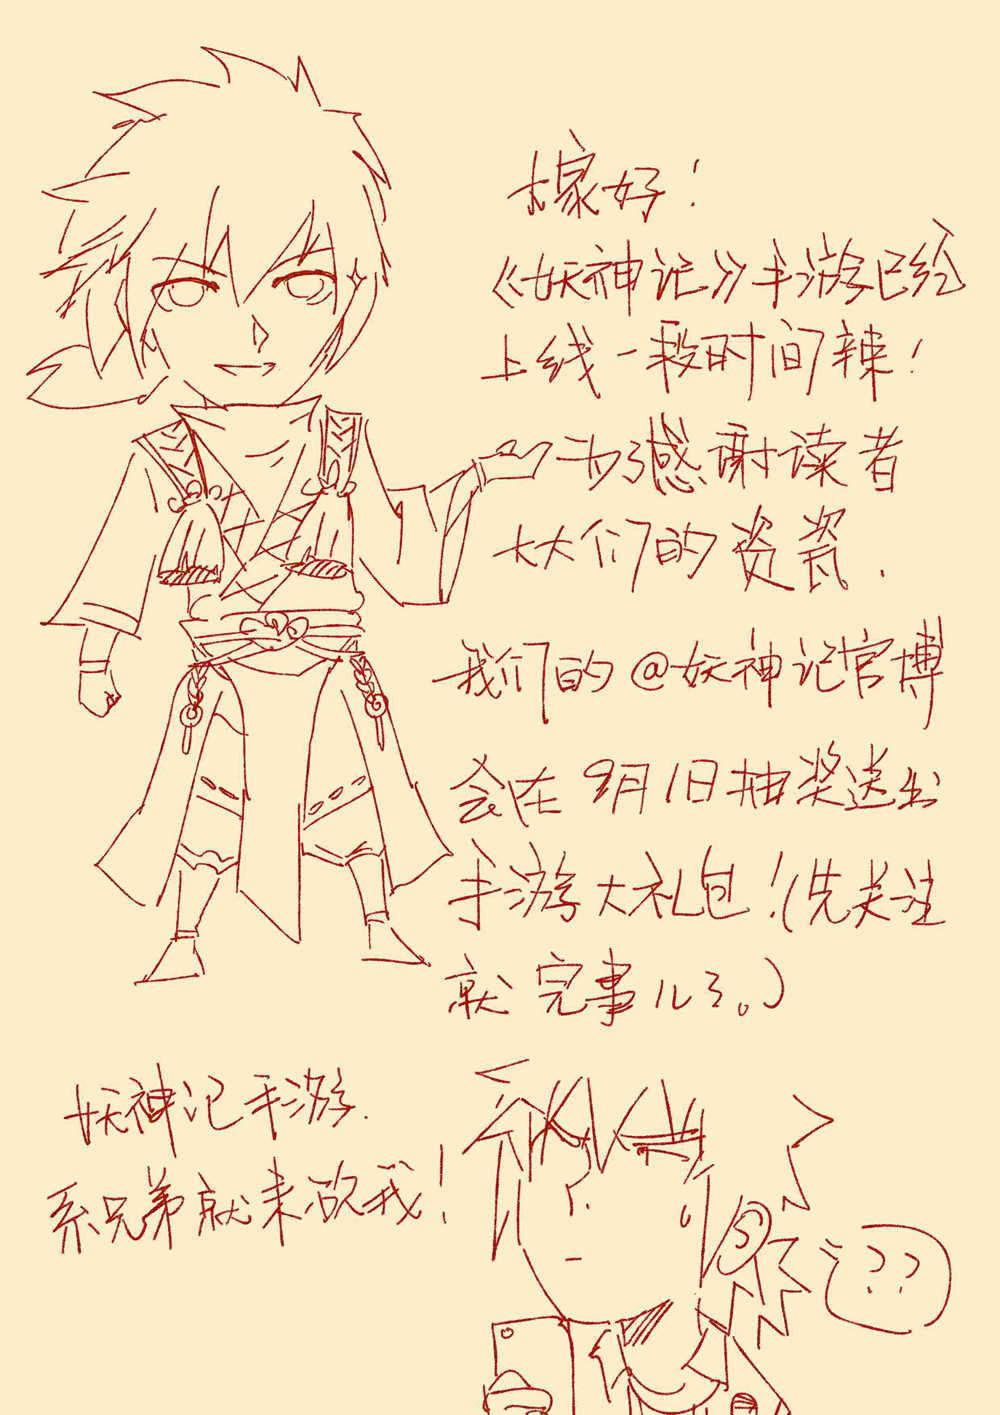 大家好!
《妖神记》手游已经
上线一段时间辣!
为了感谢读者
大大们的资瓷.
我们的@妖神记官博
会在9月1日抽奖送出
手游大礼包!(先关注
就完事儿了。)
妖神记手游.
系兄弟就来砍我!
??